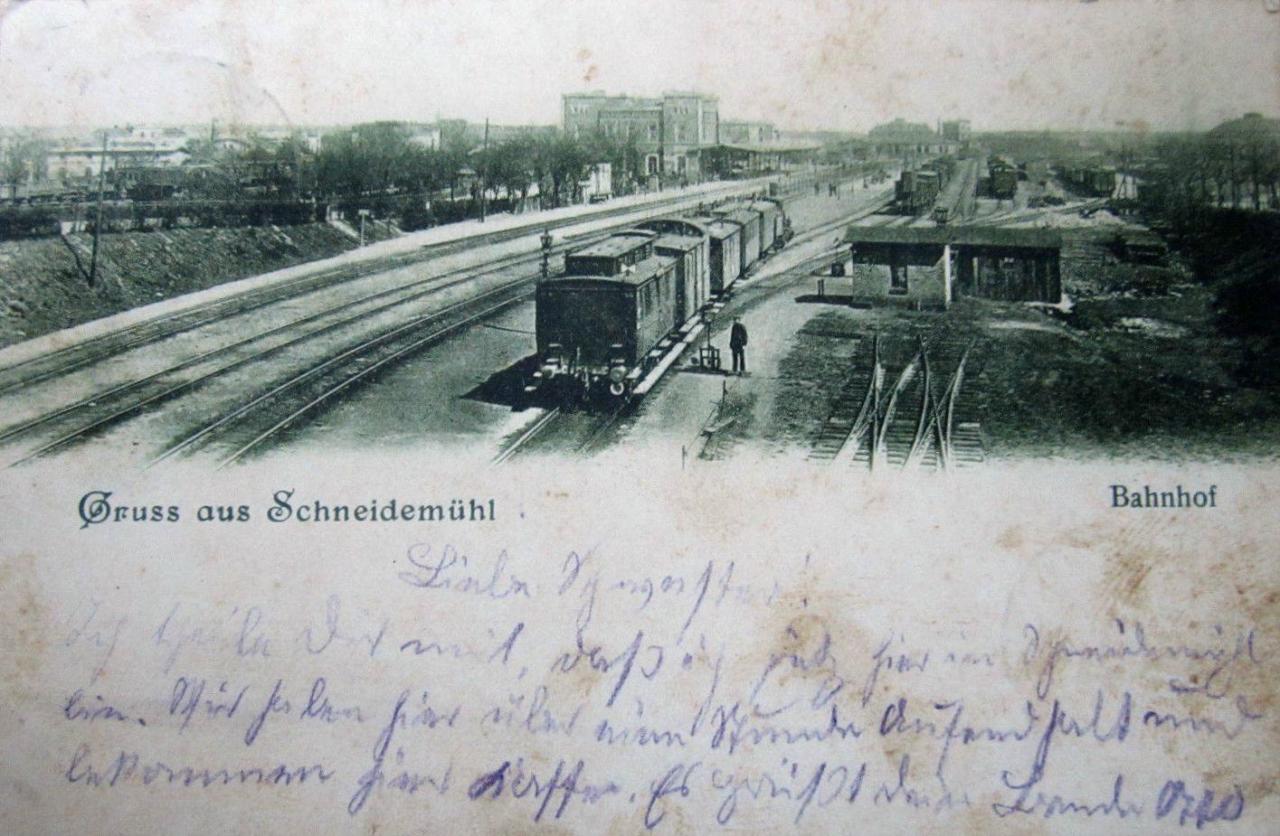 Gruss aus Schneidemühl
Bahnhof
Liebe Schwester!
Ich theile Dir mit, daß ich jetz hier in Schneidemühl
bin. Wir haben hier über eine Stunde Aufendhalt und
bekommen hier Kaffee. Es grüßt dein Bruder Otto